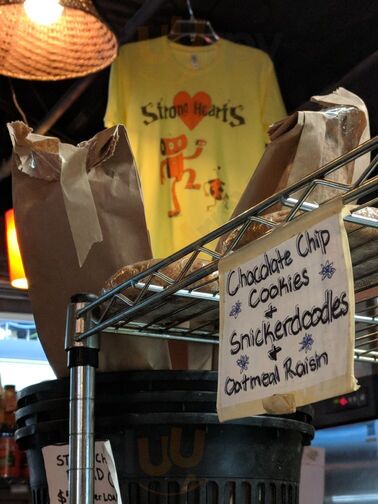 Strong Hearts
Chocolate Chip
Cookies
+
Snickerdoodles
+
Oatmeal Raisin